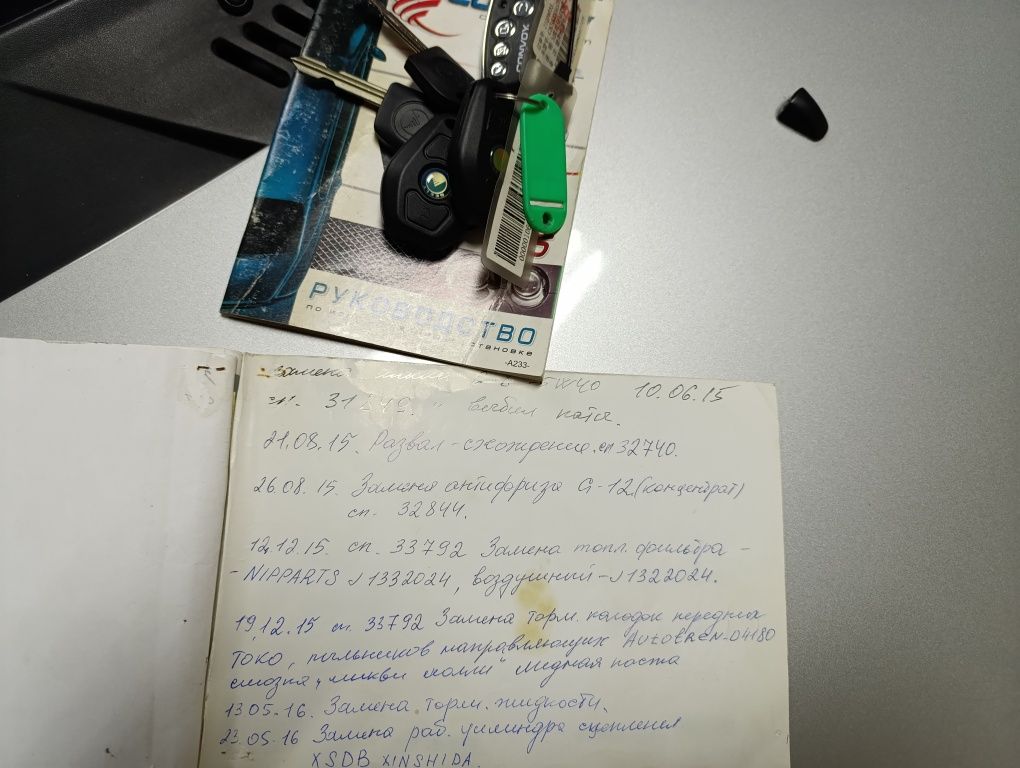 CONVOY
РУКОВОДСТВО
-A233-
Замена 10.06.15
сп.
21.08.15. Развал-схождение. сп 32740.
26.08.15. Замена антифриза G-12 (концентрат)
сп. 32844.
12.12.15. сп. 33792 Замена топл. фильтра -
- NIPPARTS J1332024, воздушный - J1322024.
19.12.15 сп. 33792 Замена торм. колодок передних
TOKO, пыльников направляющих
смазка "ликви молли" медная паста
13.05.16. Замена торм. жидкости.
23.05.16 Замена раб. цилиндра сцепления
XSDB XINSHIDA.